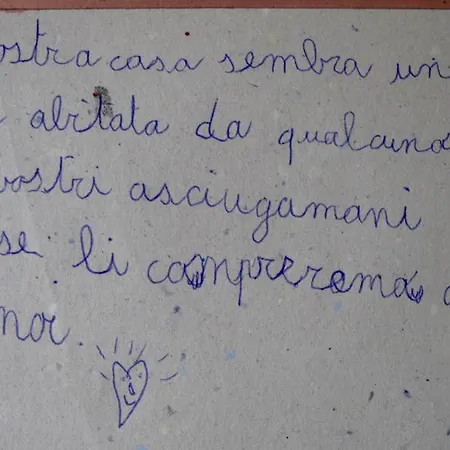 ostra casa sembra un
abitata da qualcuno
vostri asciugamani
se li compreremo
noi.